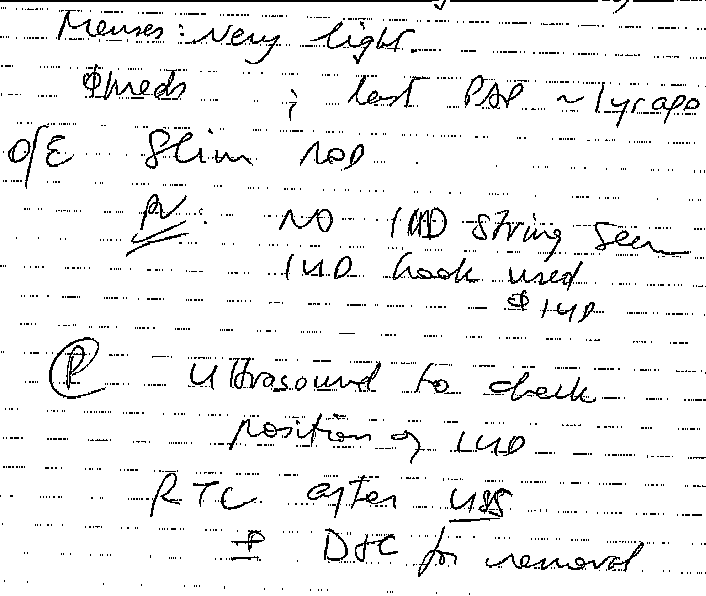 Menses: very light.
∅ meds ; last PAP ~ 1 yr ago
O/E Slim NAD
PV: NO IUD string seen
IUD hook used
∅ IUD
Ⓟ Ultrasound to check
position of IUD
RTC after USS
± D&C for removal